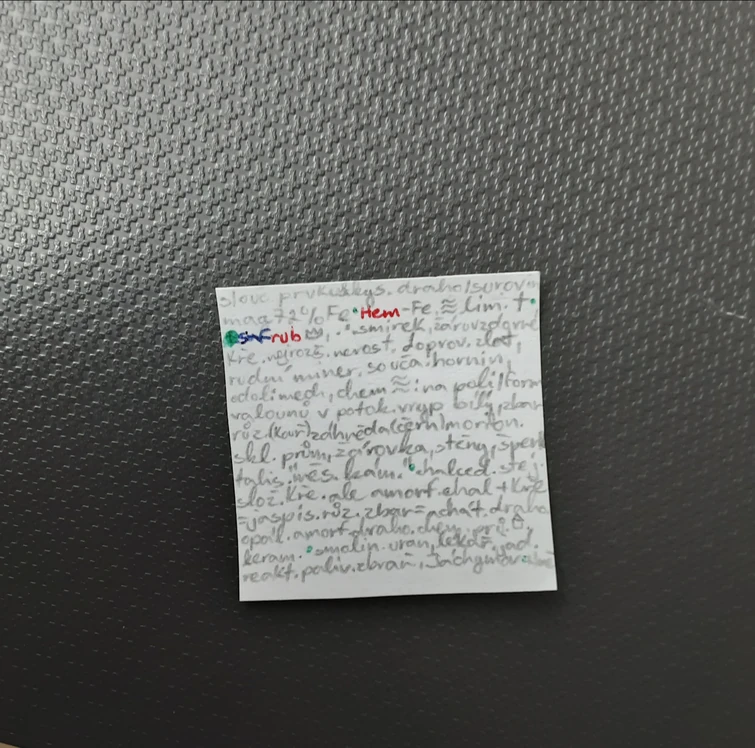 slouč. prvku s kys. draho/surovin
mag 72% Fe • Hem-Fe, ≈ lim. +•
saf rub , • smirek, žáruvzdorné
Kře. nejrozš. nerost, doprov. zlat,
rudní miner, souča. hornin,
odol. mech, chem ≈ : na poli/form
valounů v potok. vryp bílý, zbar
růž. (kouř) záhněda (čern) morion.
skl. prům, žárovka, stěny, šperk
talis. měs. kám. • chalced. stej.
slož. Kře. ale amorf. chal + Kře
=jaspis. růz. zbar = achát. draho
opál. amorf. draho. chem. pří.
keram. • smolin. uran, lékař. jad.
reakt. paliv. zbraň, Jáchymov